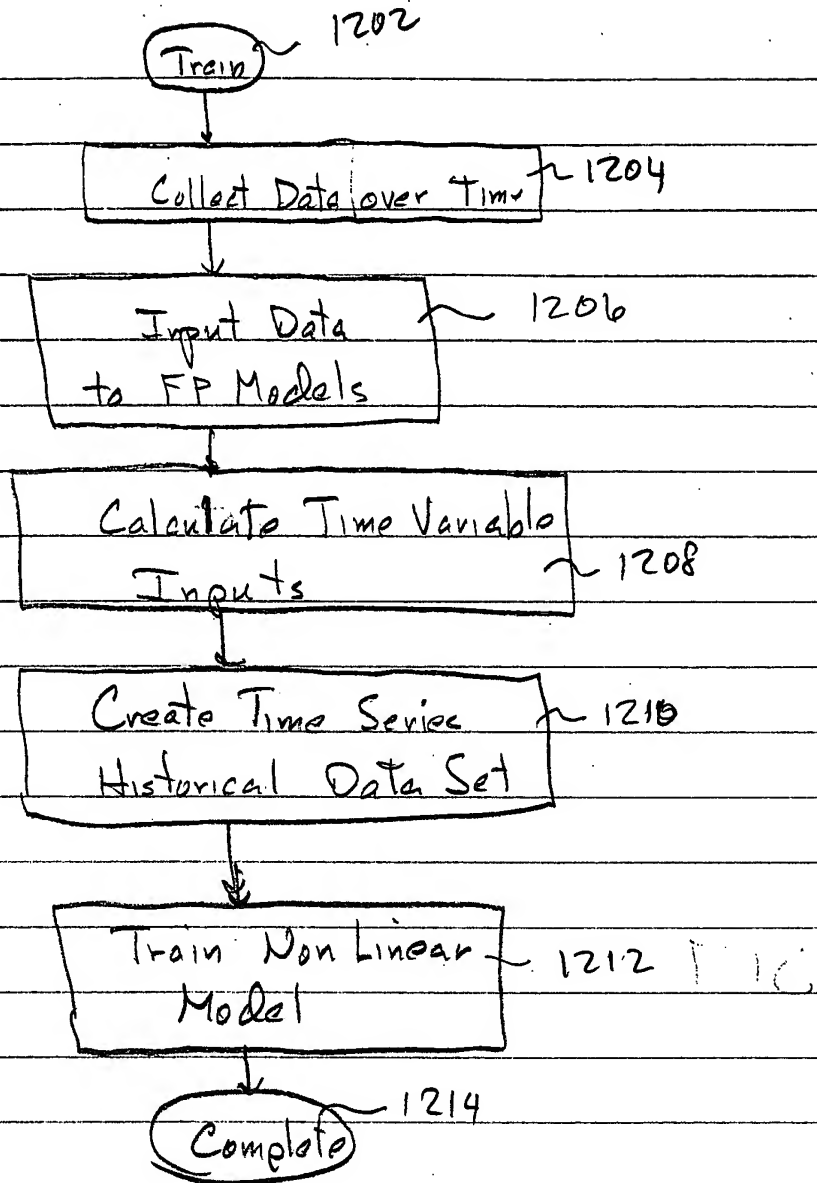 1202
Train
Collect Data over Time
1204
Input Data
to FP Models
1206
Calculate Time Variable
Inputs
1208
Create Time Series
Historical Data Set
1210
Train Non Linear
Model
1212
Complete
1214